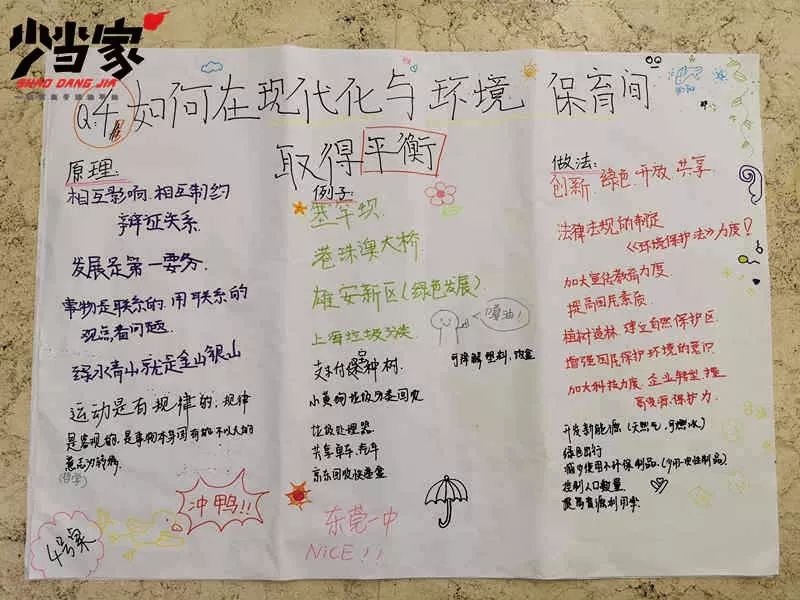 少当家
SHAO DANG JIA
Q:4 如何在现代化与环境保育间
取得平衡
原理:
相互影响.相互制约
辩证关系.
发展是第一要务.
事物是联系的.用联系的
观点看问题.
绿水青山就是金山银山
运动是有规律的,规律
是客观的,是事物本身固有的不以人的
意志为转移.
(哲学)
冲鸭!!
4号桌
例子:
塞罕坝
港珠澳大桥
雄安新区(绿色发展)
上海垃圾分类
嘿油!
支付宝种树
可降解塑料,饭盒
小黄狗垃圾分类回收
垃圾处理器
共享单车,汽车
京东回收快递盒
东莞一中
NiCE!!
做法:
创新 绿色.开放.共享.
法律法规的制定
《环境保护法》力度!
加大宣传教育力度.
提高国民素质.
植树造林.建立自然保护区.
增强国民保护环境的意识
加大科技力度.企业转型
开发新能源(天然气,可燃冰)
绿色出行
减少使用不环保制品.(少用一次性制品)
控制人口数量
提高资源利用率